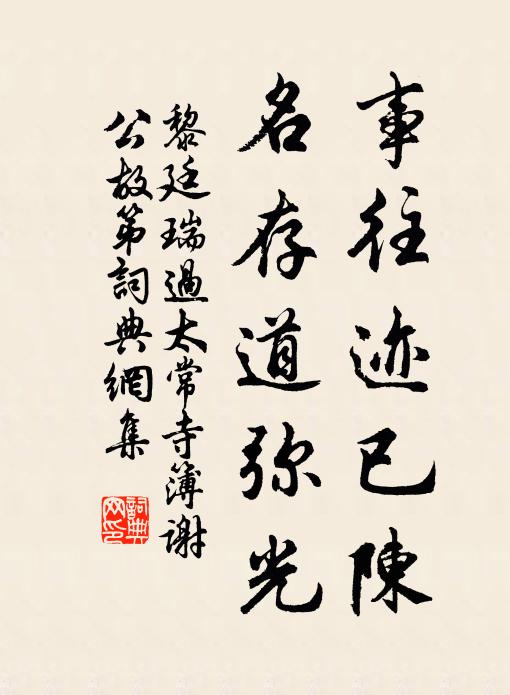 事往迹已陳
名存道弥光
黎廷瑞過太常寺簿謝
公故第詞典網集
詞典
网印